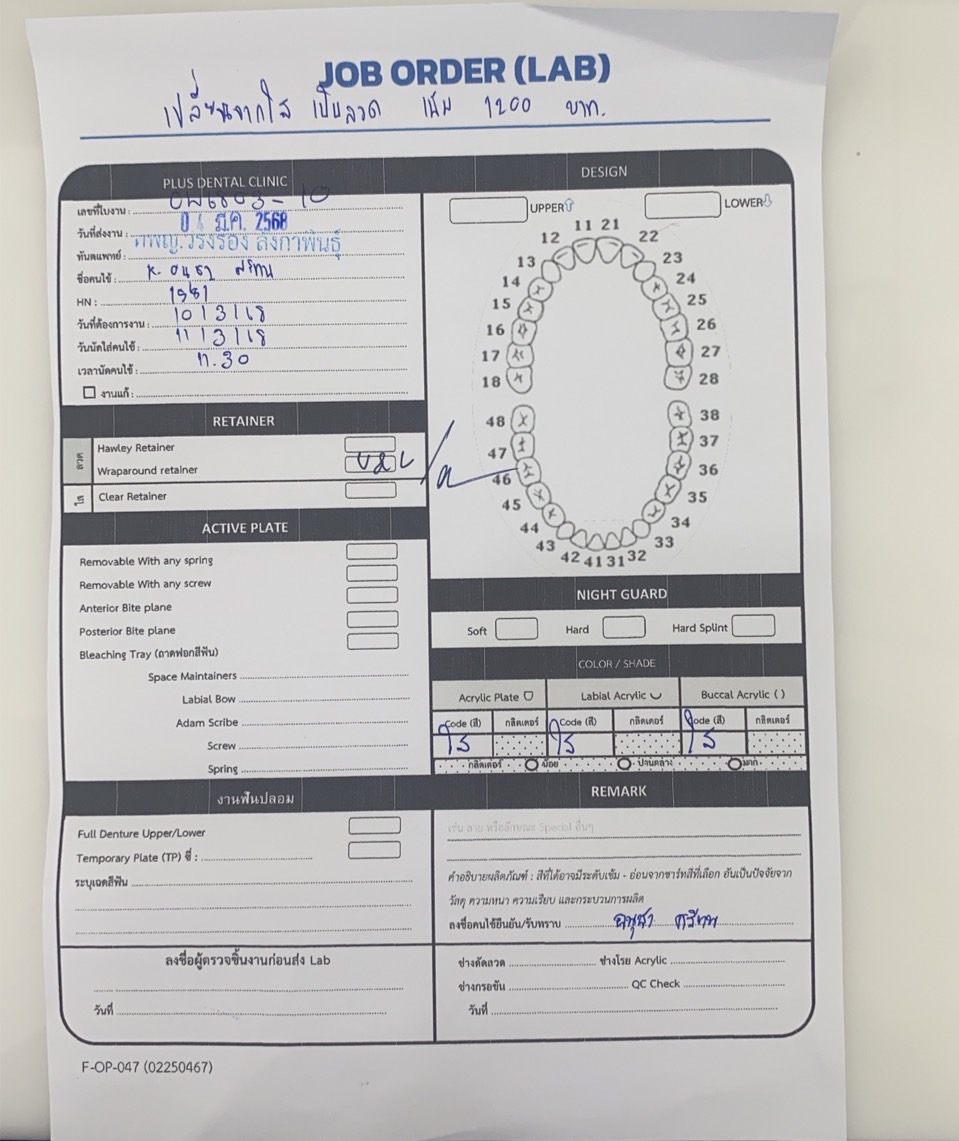 JOB ORDER (LAB)
เปลี่ยนจากใส เป็นลวด เพิ่ม 1200 บาท.
PLUS DENTAL CLINIC
เลขที่ใบงาน :
วันที่ส่งงาน : 04 มี.ค. 2568
ทันตแพทย์ :
ชื่อคนไข้ : K.
HN : 1981
วันที่ต้องการงาน : 10/3/68
วันนัดใส่คนไข้ : 11/3/68
เวลานัดคนไข้ : 11.30
งานแก้ :
RETAINER
ลวด
Hawley Retainer
Wraparound retainer
ใส
Clear Retainer
ACTIVE PLATE
Removable With any spring
Removable With any screw
Anterior Bite plane
Posterior Bite plane
Bleaching Tray (ถาดฟอกสีฟัน)
Space Maintainers
Labial Bow
Adam Scribe
Screw
Spring
งานฟันปลอม
Full Denture Upper/Lower
Temporary Plate (TP) ซี่ :
ระบุเฉดสีฟัน
ลงชื่อผู้ตรวจชิ้นงานก่อนส่ง Lab
วันที่
DESIGN
UPPER LOWER
11 21
12 22
13 23
14 24
15 25
16 26
17 27
18 28
48 38
47 37
46 36
45 35
44 34
43 33
42 41 31 32
NIGHT GUARD
Soft Hard Hard Splint
COLOR / SHADE
Acrylic Plate Labial Acrylic Buccal Acrylic ( )
Code (สี) กลิตเตอร์ Code (สี) กลิตเตอร์ Code (สี) กลิตเตอร์
ใส ใส ใส
กลิตเตอร์ น้อย ปานกลาง มาก
REMARK
เช่น ลาย หรือลักษณะ Special อื่นๆ
คำอธิบายผลิตภัณฑ์ : สีที่ได้อาจมีระดับเข้ม - อ่อนจากชาร์ทสีที่เลือก อันเป็นปัจจัยจาก
วัสดุ ความหนา ความเรียบ และกระบวนการผลิต
ลงชื่อคนไข้ยืนยัน/รับทราบ
ช่างดัดลวด ช่างโรย Acrylic
ช่างกรอขัน QC Check
วันที่
F-OP-047 (02250467)